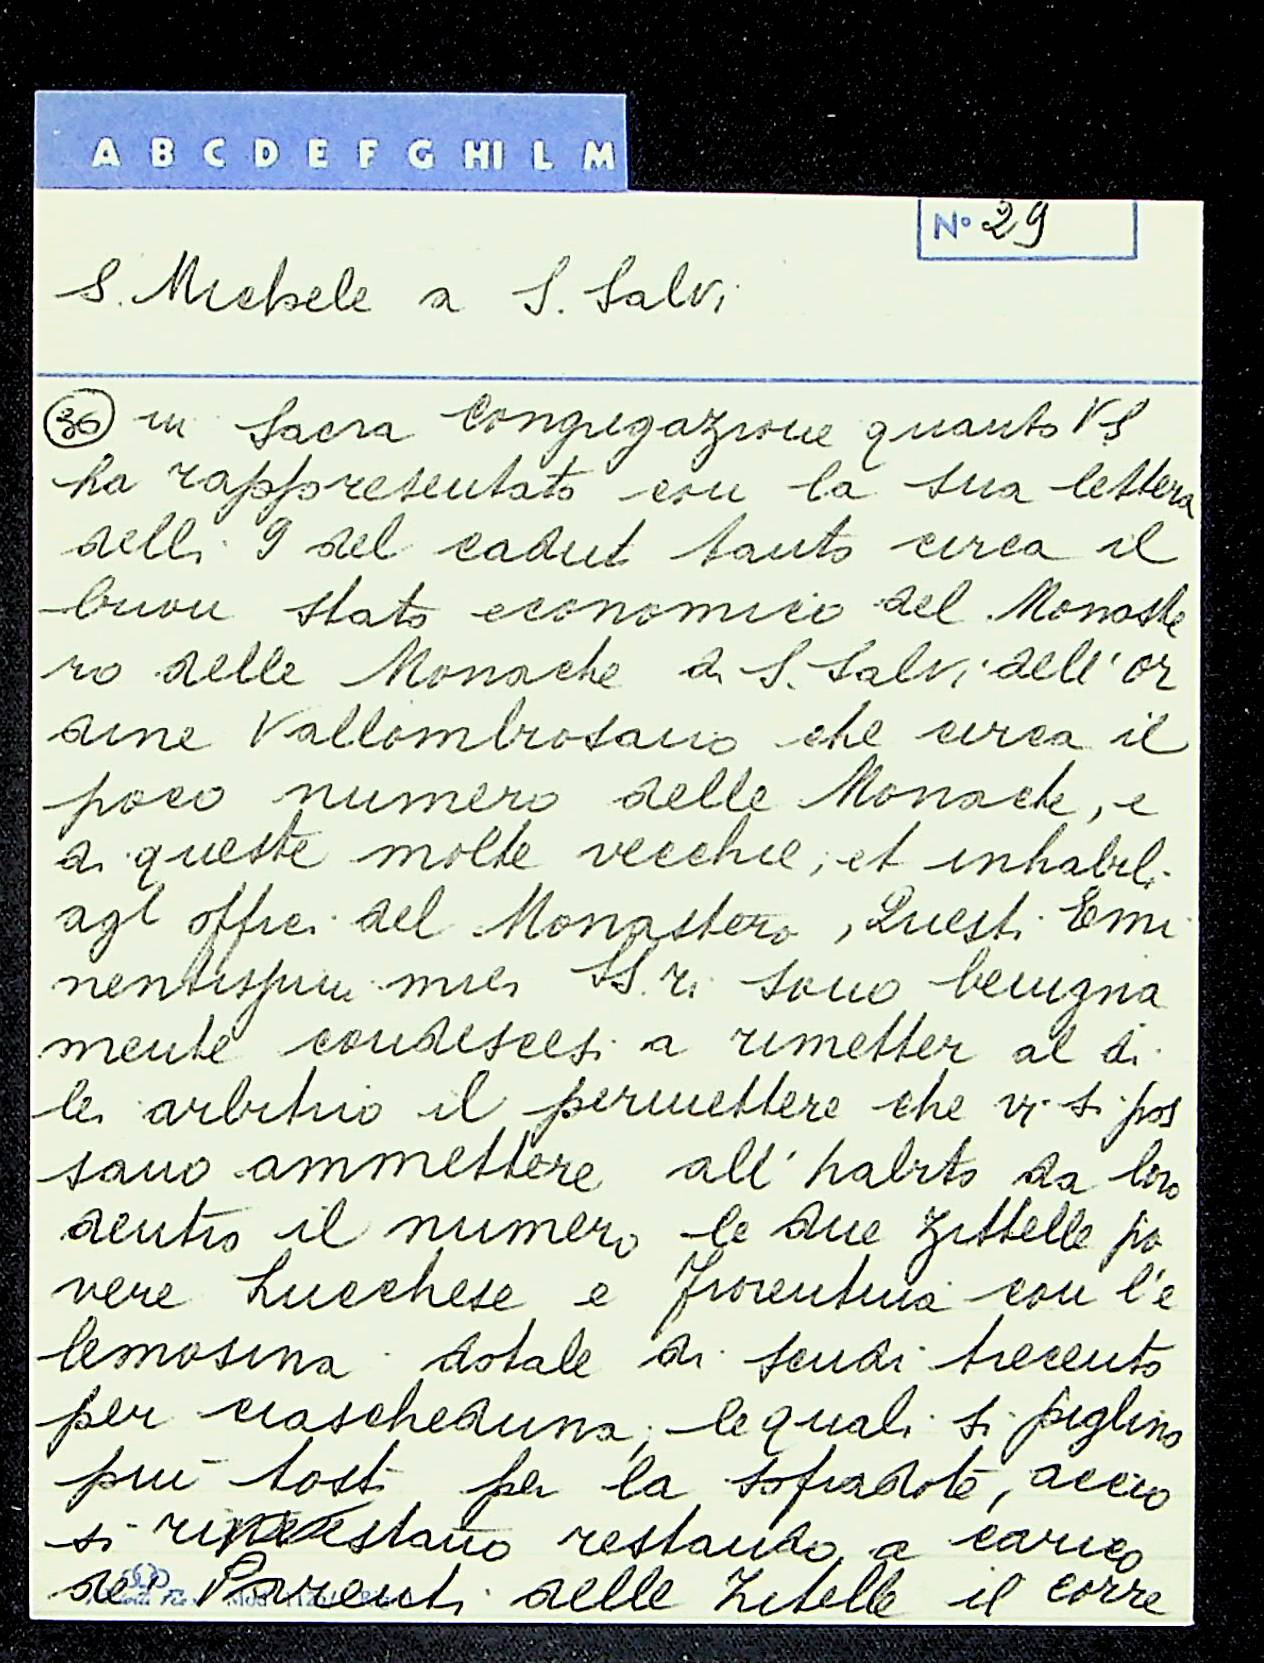 A B C D E F G HI L M
N° 29
S. Michele a S. Salvi
36 in Sacra Congregazione quanto VS
ha rappresentato con la sua lettera
delli 9 del cadut tanto circa il
buon stato economico del Monaste
ro delle Monache di S. Salvi dell'or
dine Vallombrosano che circa il
poco numero delle Monache, e
di queste molte vecchie, et inhabili
agl offici del Monastero, Questi Emi
nentissimi miei SS.ri sono benigna
mente condiscesi a rimetter al di
lei arbitrio il permettere che vi si pos
sano ammettere all'habito da loro
dentro il numero le due zittelle po
vere Lucchese e Fiorentina con l'e
lemosina dotale di scudi trecento
per ciascheduna, le quali si piglino
più tosto per la sopradote, acciò
si rinvestano restando a carico
de' Parenti delle Zitelle il corre